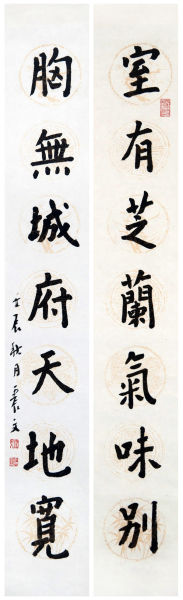 室有芝蘭氣味别
胸無城府天地寬
壬辰秋月震文